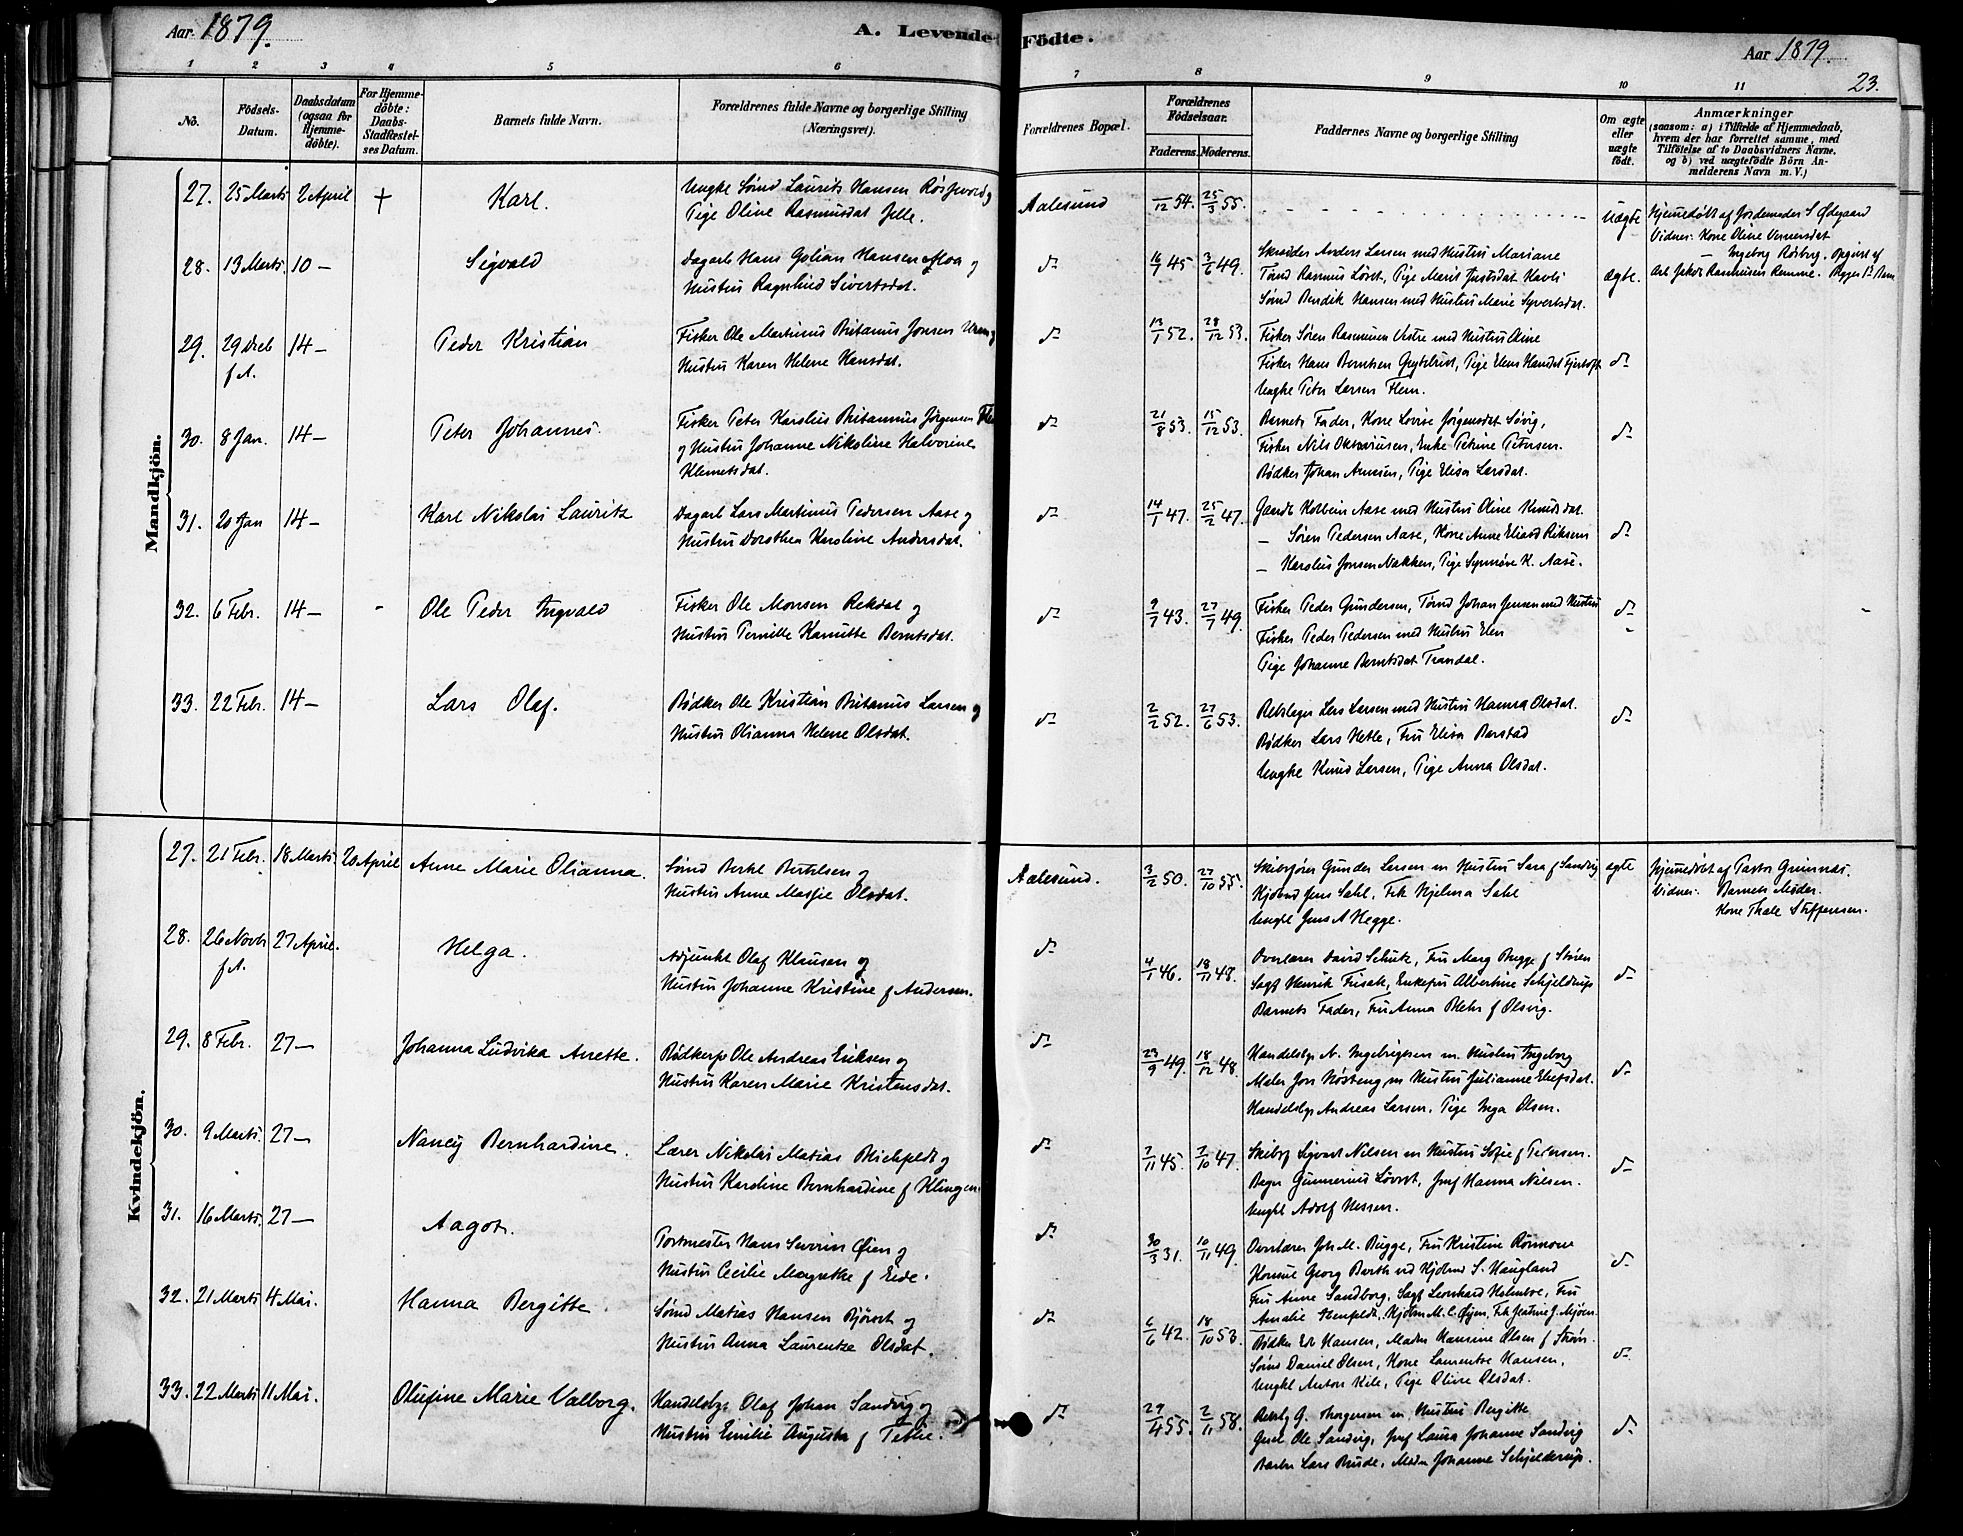 Aar 1879.
A. Levende Födte.
Aar 1879.
23.
1 2 3 4 5 6 7 8 9 10 11
No.
Födsels-Datum.
Daabsdatum (ogsaa for Hjemme-döbte).
For Hjemme-döbte: Daabs-Stadfæstel-ses Datum.
Barnets fulde Navn.
Forældrenes fulde Navne og borgerlige Stilling (Næringsvei).
Forældrenes Bopæl.
Forældrenes Födselsaar.
Faderens. Moderens.
Faddernes Navne og borgerlige Stilling
Om ægte eller uægte födt.
Anmærkninger
(saasom: a) i Tilfælde af Hjemmedaab, hvem der har forrettet samme, med Tilföielse af to Daabsvidners Navne, og b) ved uægtefödte Börn An-melderens Navn m. V.)
Mandkjön.
27. 25 Marts 2 April + Karl. Ungkl Sømd Laurits Hansen
Pige Oline Rasmusdat Jelle. Aalesund /12 54. 25/3 55. Uægte Hjemmedøbt af Jordemoder S Ødegaard
Vidner: Kone Oline
Ingeborg
28. 13 Marts 10 — Sigvald Dagarb Hans Golian Hansen Moa og
Hustru Ragnhild Sivertsdat. do 16/7 45 3/6 49. Skrædder Anders Larsen med Hustru Mariane
Tømd Rasmus Løset, Pige Marit
Sømd Bendik Hansen med Hustru Marie Syvertsdat. ægte.
29. 29 Decb f.A. 14 — Peder Kristian Fisker Ole Martinus Britanus Jonsen
Hustru Karen Helene Hansdat. do 13/1 52. 28/12 53. Fisker Søren Rasmussen Vestre med Hustru
Fisker Hans Berntsen
Ungkl Peter Larsen Flem. do
30. 8 Jan. 14 — Peter Johannes. Fisker Peter Karolius Britannius Jørgensen
og Hustru Johanne Nikoline Halvorine
Klemetsdat. do 21/8 53. 15/12 53. Barnets Fader, Kone Lovise Jørgensdat Søvig,
Fisker Nils Oktaviusen, Enke Petrine Petersen.
Bødker Johan Arnesen, Pige Elisa Larsdat. do
31. 20 Jan 14 — Karl Nikolai Lauritz Dagarb Lars Martinus Pedersen Aase og
Hustru Dorothea Karoline Andersdat. do 14/1 47. 25/2 47. Gaardb Kolbein Aase med Hustru Oline Knudsdat.
— Søren Pedersen Aase, Kone Anne
— Karolius Jonsen Nakken, Pige Synnøve K. Aase. do
32. 6 Febr. 14 — Ole Peder Ingvald Fisker Ole Monsen Rekdal og
Hustru Pernille Kamitte Berntsdat. do 9/7 43. 27/7 49. Fisker Peder Gundersen, Tømd Johan Jensen med Hustru
Fisker Peder Pedersen med Hustru Elen
Pige Johanne Berntsdat Trandal. do
33. 22 Febr. 14 — Lars Olaf. Bødker Ole Kristian Britanus Larsen og
Hustru Olianna Helene Olsdat. do 2/2 52. 27/6 53. Rebslager Lars Larsen med Hustru Hanna Olsdat.
Bødker Lars Hetle, Fru Elisa Barstad
Ungkl Knud Larsen, Pige Anna Olsdat. do
Kvindekjön.
27. 21 Febr. 18 Marts 20 April Anne Marie Olianna. Sømd Bertel Bertelsen og
Hustru Anne Massie Olsdat. Aalesund. 3/2 50. 27/10 55. Skibsfører Gunder Larsen m Hustru Sara f Sandvig
Kjøbmd Jens Dahl, Frk Hjelma Dahl
Ungkl Jens A Hegge. ægte Hjemmedøbt af Pastor Grimnæs.
Vidner: Barnets Moder.
Kone Thale Steffensen.
28. 26 Novb f.A. 27 April. Helga. Adjunkt Olaf Klausen og
Hustru Johanne Kristine f Andersen. do 4/1 46. 18/11 48. Overlærer David Schutz, Fru Marg Bugge f Støren
Sagf Henrik Frisak, Enkefru Albertine Schjeldrup
Barnets Fader, Fru Anna Blehr f Olsvig. do
29. 8 Febr. 27 — Johanna Ludvika Anette. Bødker Ole Andreas Eriksen og
Hustru Karen Marie Kristensdat. do 23/9 49. 18/12 48. Handelsby N. Ingebrigtsen m. Hustru Ingeborg
Maler Jon m Hustru Julianne
Handelsby Andreas Larsen. Pige Inga Olsen. do
30. 9 Marts. 27 — Nancy Bernhardine. Lærer Nikolai Matias Blichfeldt og
Hustru Karoline Bernhardine f Klingen do 7/11 45. 7/10 47. Skibsf Sigvart Nilsen m Hustru Sofie f Petersen.
Bager Gunnerius Løvset, Jmf Hanna Nilsen.
Ungkl Adolf Nessen. do
31. 16 Marts. 27 — Aagot. Postmester Hans Severin Øien og
Hustru Cecilie Margrethe f Eide. do 30/3 31. 10/11 49. Overlærer Joh M. Bugge, Fru Kristine
Konsul Georg Barth Kjøbmd S. Haugland
Fru Anne Sandborg, Sagf Leonhard Holmboe, Fru
Amalie Kjøbm M. C. Øyen, Frk do
32. 21 Marts 4 Mai. Hanna Bergitte. Sømd Matias Hansen Bjørset og
Hustru Anna Laurentze Olsdat. do 6/6 42. 18/10 53. Bødker Edv Hansen, Madm Hansine Olsen f Strøm.
Sømd Daniel Olsen, Kone Laurentze Hansen,
Ungkl Anton Kile, Pige Oline Olsdat. do
33. 22 Marts 11 Mai. Olufine Marie Valborg. Handelsby Olaf Johan Sandvig og
Hustru Emilie Augusta f do 29/4 55. 2/11 58. G. Thorgersen m. Hustru Bergitte
Ole Sandvig, Jmf Laura Johanne Sandvig
Lars Madm Johanne Schjelderup. do